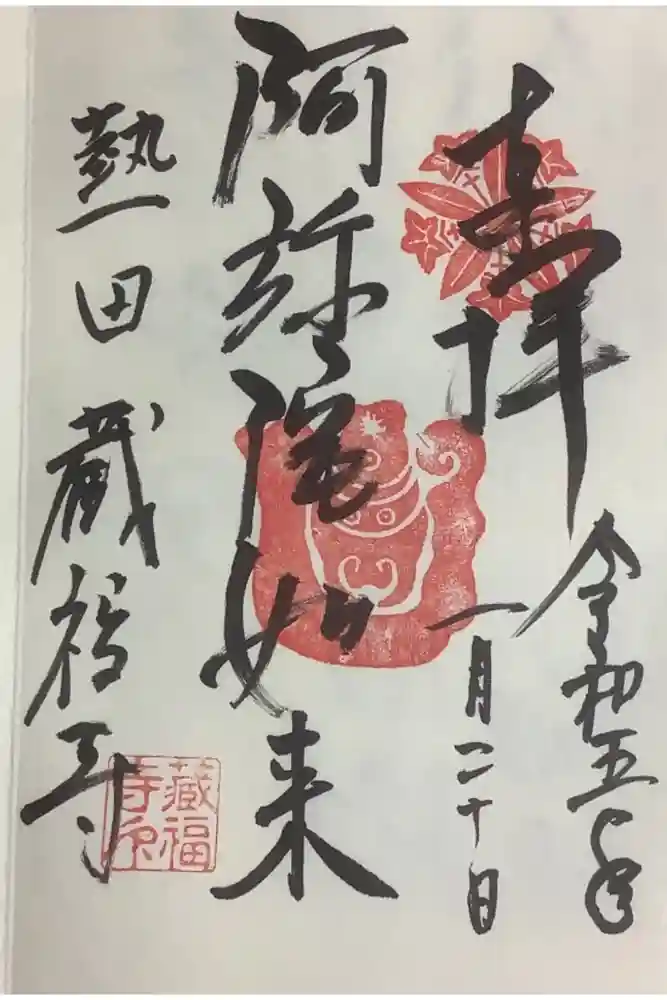 奉拝
令和五年
一月二十日
阿弥陀如来
熱田 蔵福寺
蔵福寺印